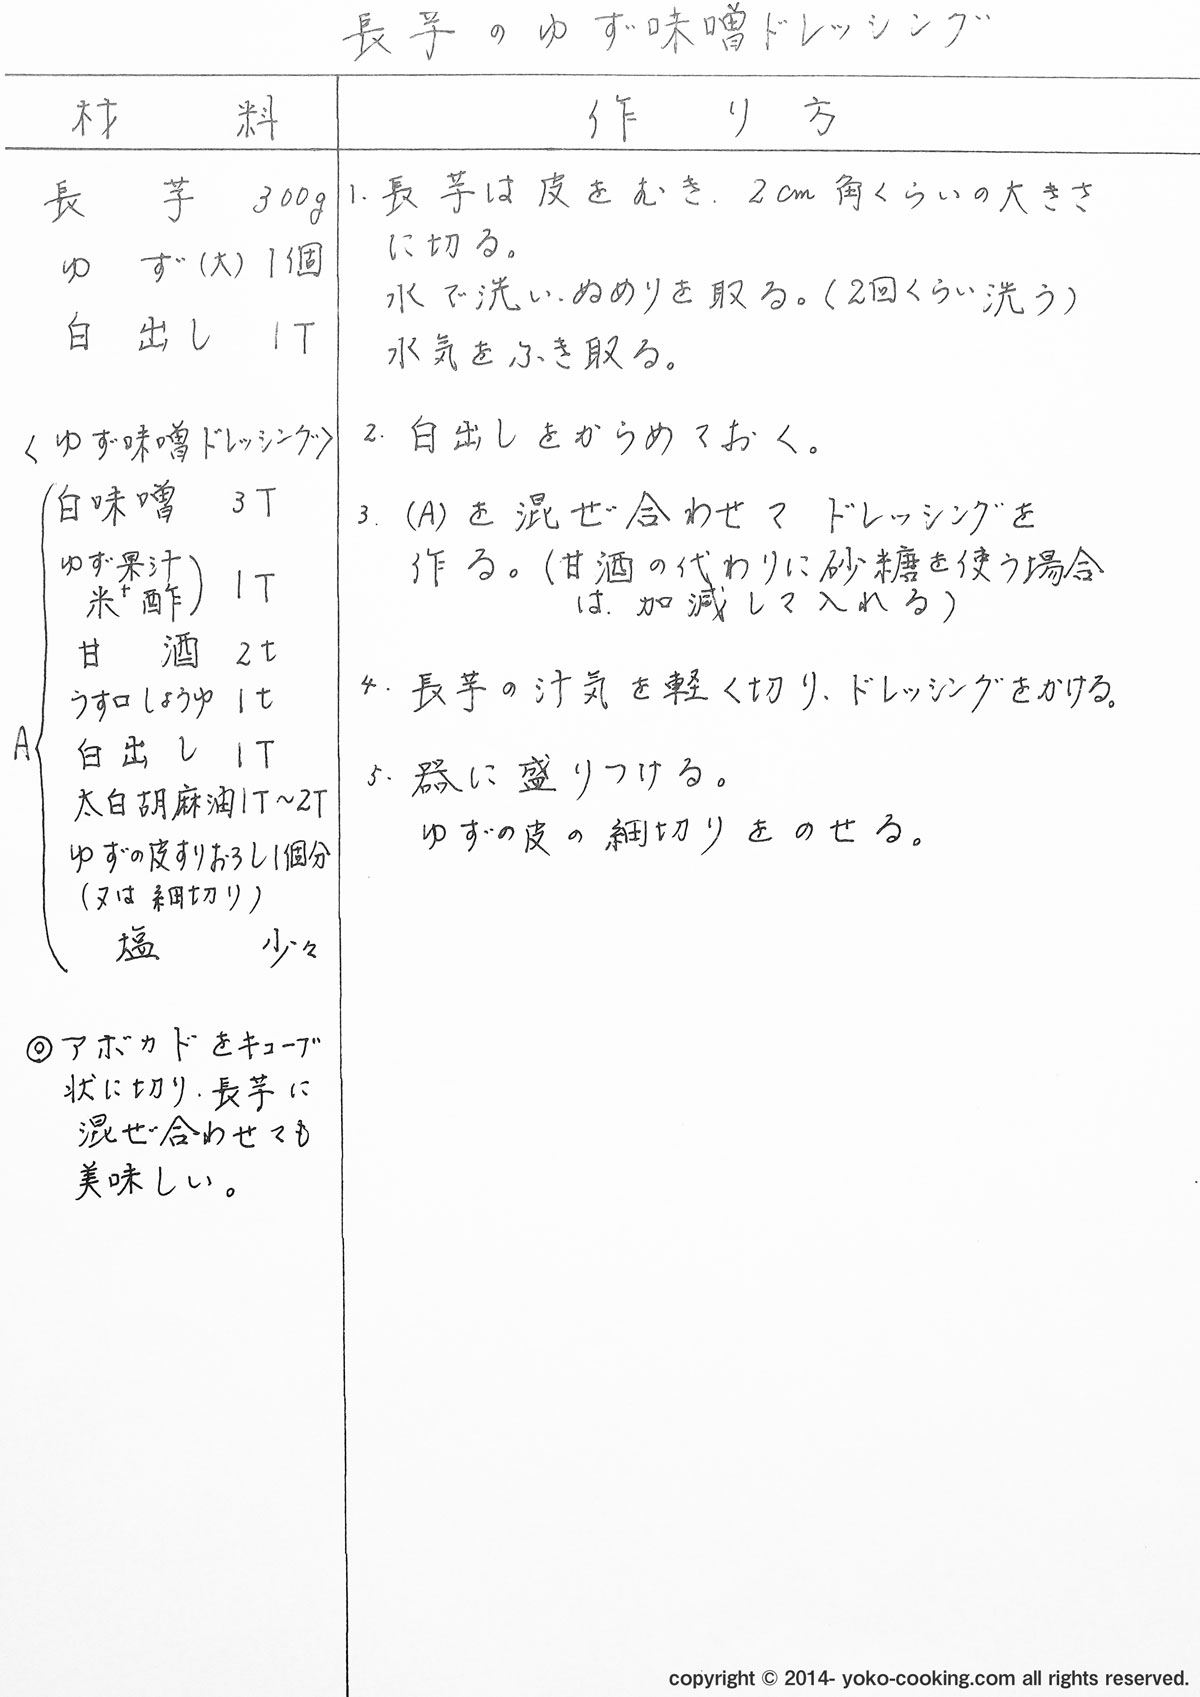 長芋のゆず味噌ドレッシング
材料
作り方
長芋 300g
ゆず(大) 1個
白出し 1T
<ゆず味噌ドレッシング>
A
白味噌 3T
ゆず果汁
+
米酢) 1T
甘酒 2t
うす口しょうゆ 1t
白出し 1T
太白胡麻油1T〜2T
ゆずの皮すりおろし1個分
(又は細切り)
塩 少々
◎アボカドをキューブ
状に切り、長芋に
混ぜ合わせても
美味しい。
1. 長芋は皮をむき、2cm角くらいの大きさ
に切る。
水で洗い、ぬめりを取る。(2回くらい洗う)
水気をふき取る。
2. 白出しをからめておく。
3. (A)を混ぜ合わせて ドレッシングを
作る。(甘酒の代わりに砂糖を使う場合
は、加減して入れる)
4. 長芋の汁気を軽く切り、ドレッシングをかける。
5. 器に盛りつける。
ゆずの皮の細切りをのせる。
copyright © 2014- yoko-cooking.com all rights reserved.